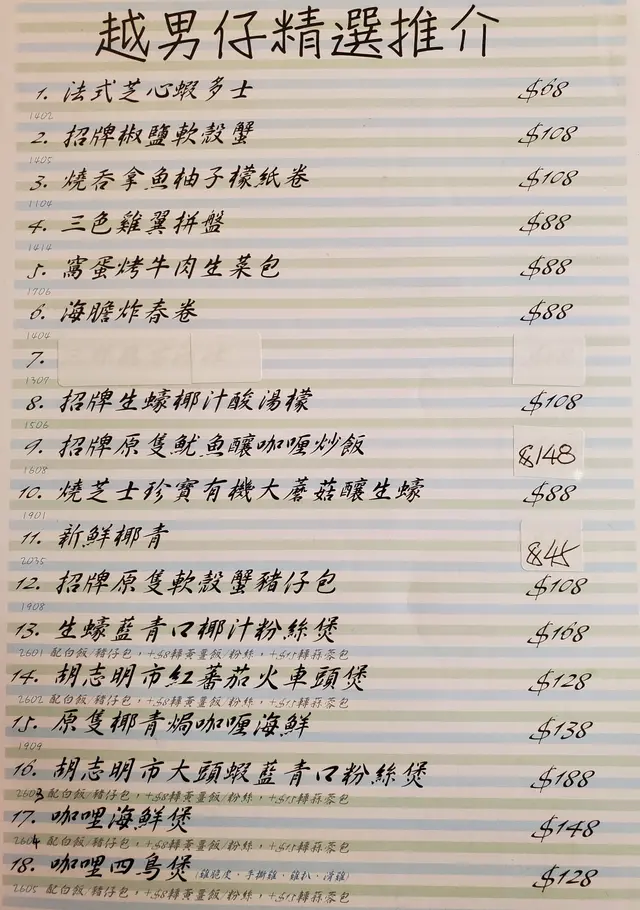 越男仔精選推介
1. 法式芝心蝦多士 $68
1402
2. 招牌椒鹽軟殼蟹 $108
1405
3. 燒吞拿魚柚子檬紙卷 $108
1104
4. 三色雞翼拼盤 $88
1414
5. 窩蛋烤牛肉生菜包 $88
1706
6. 海膽炸春卷 $88
1404
7.
1307
8. 招牌生蠔椰汁酸湯檬 $108
1506
9. 招牌原隻魷魚釀咖喱炒飯 $148
1608
10. 燒芝士珍寶有機大蘑菇釀生蠔 $88
1901
11. 新鮮椰青 $45
2035
12. 招牌原隻軟殼蟹豬仔包 $108
1908
13. 生蠔藍青口椰汁粉絲煲 $168
2601 配白飯/豬仔包，+$8轉黃薑飯/粉絲，+$15轉蒜蓉包
14. 胡志明市紅蕃茄火車頭煲 $128
2602 配白飯/豬仔包，+$8轉黃薑飯/粉絲，+$15轉蒜蓉包
15. 原隻椰青焗咖喱海鮮 $138
1909
16. 胡志明市大頭蝦藍青口粉絲煲 $188
2603 配白飯/豬仔包，+$8轉黃薑飯/粉絲，+$15轉蒜蓉包
17. 咖哩海鮮煲 $148
2604 配白飯/豬仔包，+$8轉黃薑飯/粉絲，+$15轉蒜蓉包
18. 咖哩四鳥煲(雞脆皮、手撕雞、雞扒、滑雞) $128
2605 配白飯/豬仔包，+$8轉黃薑飯/粉絲，+$15轉蒜蓉包